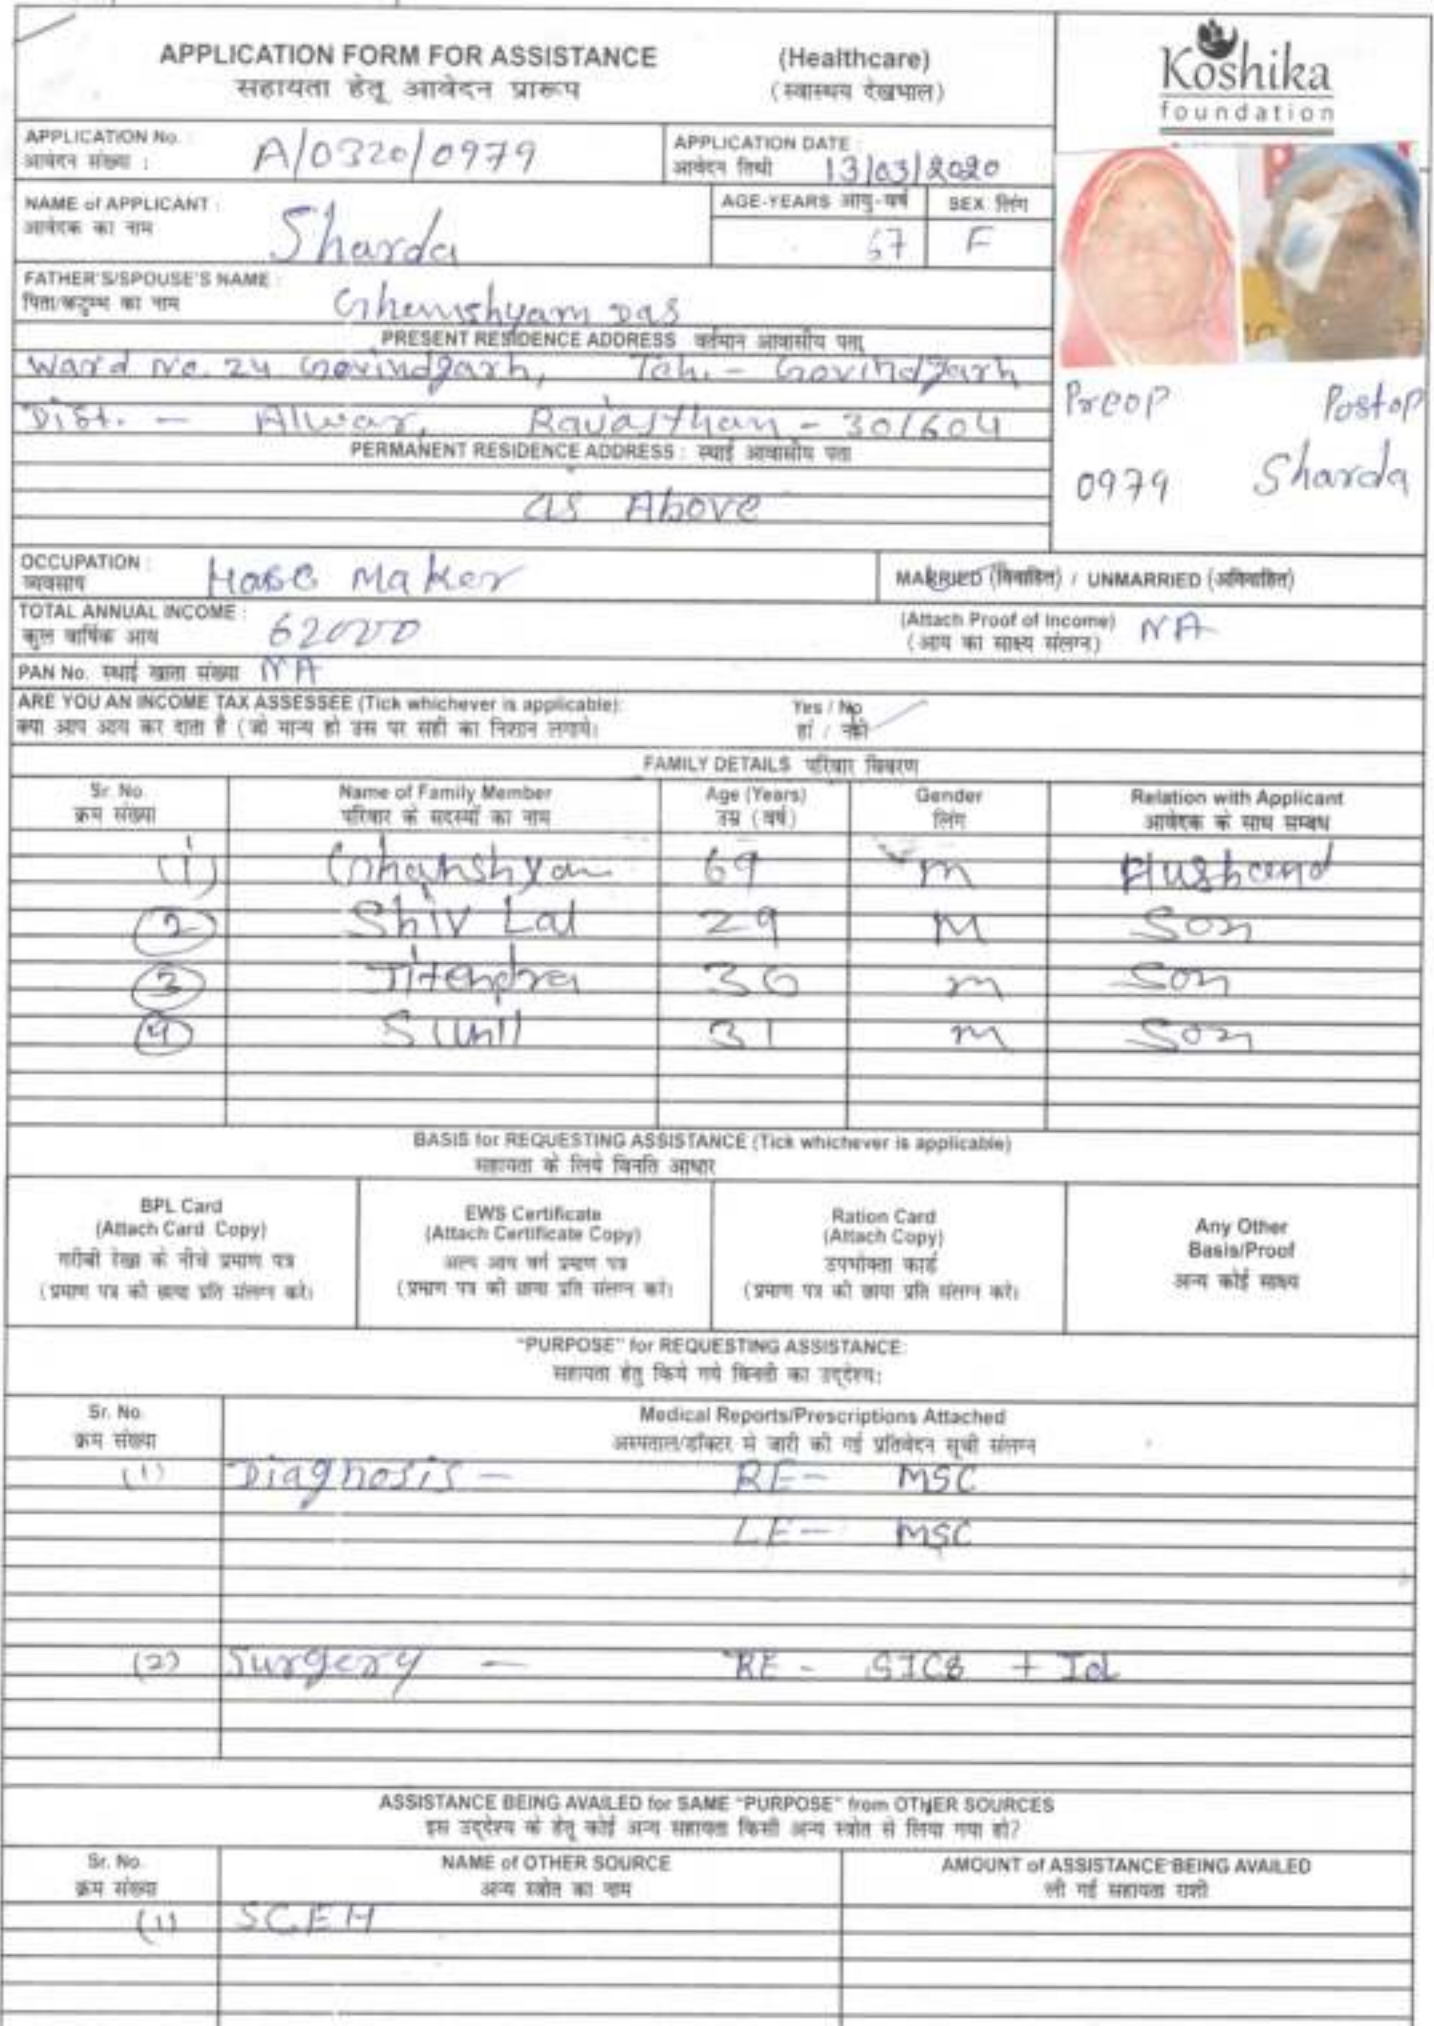 APPLICATION FORM FOR ASSISTANCE (Healthcare)
सहायता हेतू आवेदन प्रारूप (स्वास्थय देखभाल)
Koshika
foundation
APPLICATION No. :
आवेदन संख्या : A/0320/0979
APPLICATION DATE :
आवेदन तिथी 13/03/2020
NAME of APPLICANT :
आवेदक का नाम Sharda
AGE-YEARS आयु-वर्ष SEX लिंग
67 F
FATHER'S/SPOUSE'S NAME :
पिता/कटुम्ब का नाम Ghenshyam Das
PRESENT RESIDENCE ADDRESS वर्तमान आवासीय पता
Ward No. 24 Govindgarh, Teh. - Govindgarh
Dist. - Alwar, Rajasthan - 301604
Preop Postop
0979 Sharda
PERMANENT RESIDENCE ADDRESS : स्थाई आवासीय पता
as Above
OCCUPATION :
व्यवसाय Hose Maker
MARRIED (विवाहित) / UNMARRIED (अविवाहित)
TOTAL ANNUAL INCOME :
कुल वार्षिक आय 62000
(Attach Proof of Income) NA
(आय का साक्ष्य संलग्न)
PAN No. स्थाई खाता संख्या NA
ARE YOU AN INCOME TAX ASSESSEE (Tick whichever is applicable): Yes / No
क्या आप आय कर दाता है (जो मान्य हो उस पर सही का निशान लगाये। हां / नहीं
FAMILY DETAILS परिवार विवरण
Sr. No. Name of Family Member Age (Years) Gender Relation with Applicant
क्रम संख्या परिवार के सदस्यों का नाम उम्र (वर्ष) लिंग आवेदक के साथ सम्बध
(1) Ghanshyam 69 m Husband
(2) Shiv Lal 29 M Son
(3) Jitendra 36 m Son
(4) Sunil 31 m Son
BASIS for REQUESTING ASSISTANCE (Tick whichever is applicable)
सहायता के लिये विनति आधार
BPL Card
(Attach Card Copy)
गरीबी रेखा के नीचे प्रमाण पत्र
(प्रमाण पत्र की छाया प्रति संलग्न करे।
EWS Certificate
(Attach Certificate Copy)
अल्प आय वर्ग प्रमाण पत्र
(प्रमाण पत्र की छाया प्रति संलग्न करे।
Ration Card
(Attach Copy)
उपभोक्ता कार्ड
(प्रमाण पत्र की छाया प्रति संलग्न करे।
Any Other
Basis/Proof
अन्य कोई साक्ष्य
"PURPOSE" for REQUESTING ASSISTANCE:
सहायता हेतु किये गये विनती का उद्देश्य:
Sr. No. Medical Reports/Prescriptions Attached
क्रम संख्या अस्पताल/डॉक्टर से जारी की गई प्रतिवेदन सूची संलग्न
(1) Diagnosis - RE - MSC
LE - MSC
(2) Surgery - RE - SICS + Iol
ASSISTANCE BEING AVAILED for SAME "PURPOSE" from OTHER SOURCES
इस उद्देश्य के हेतू कोई अन्य सहायता किसी अन्य स्त्रोत से लिया गया हो?
Sr. No. NAME of OTHER SOURCE AMOUNT of ASSISTANCE BEING AVAILED
क्रम संख्या अन्य स्त्रोत का नाम ली गई सहायता राशी
(1) SCEH